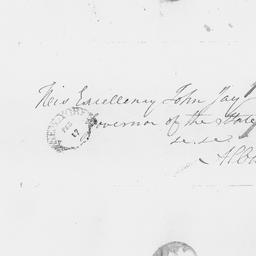 His Excellency John Jay
Governor of the State
&c. &c.
Alba
NEW-YORK
FEB
17